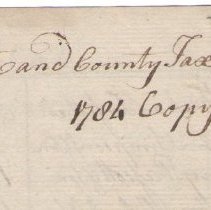 and County Tax
1784 Copy